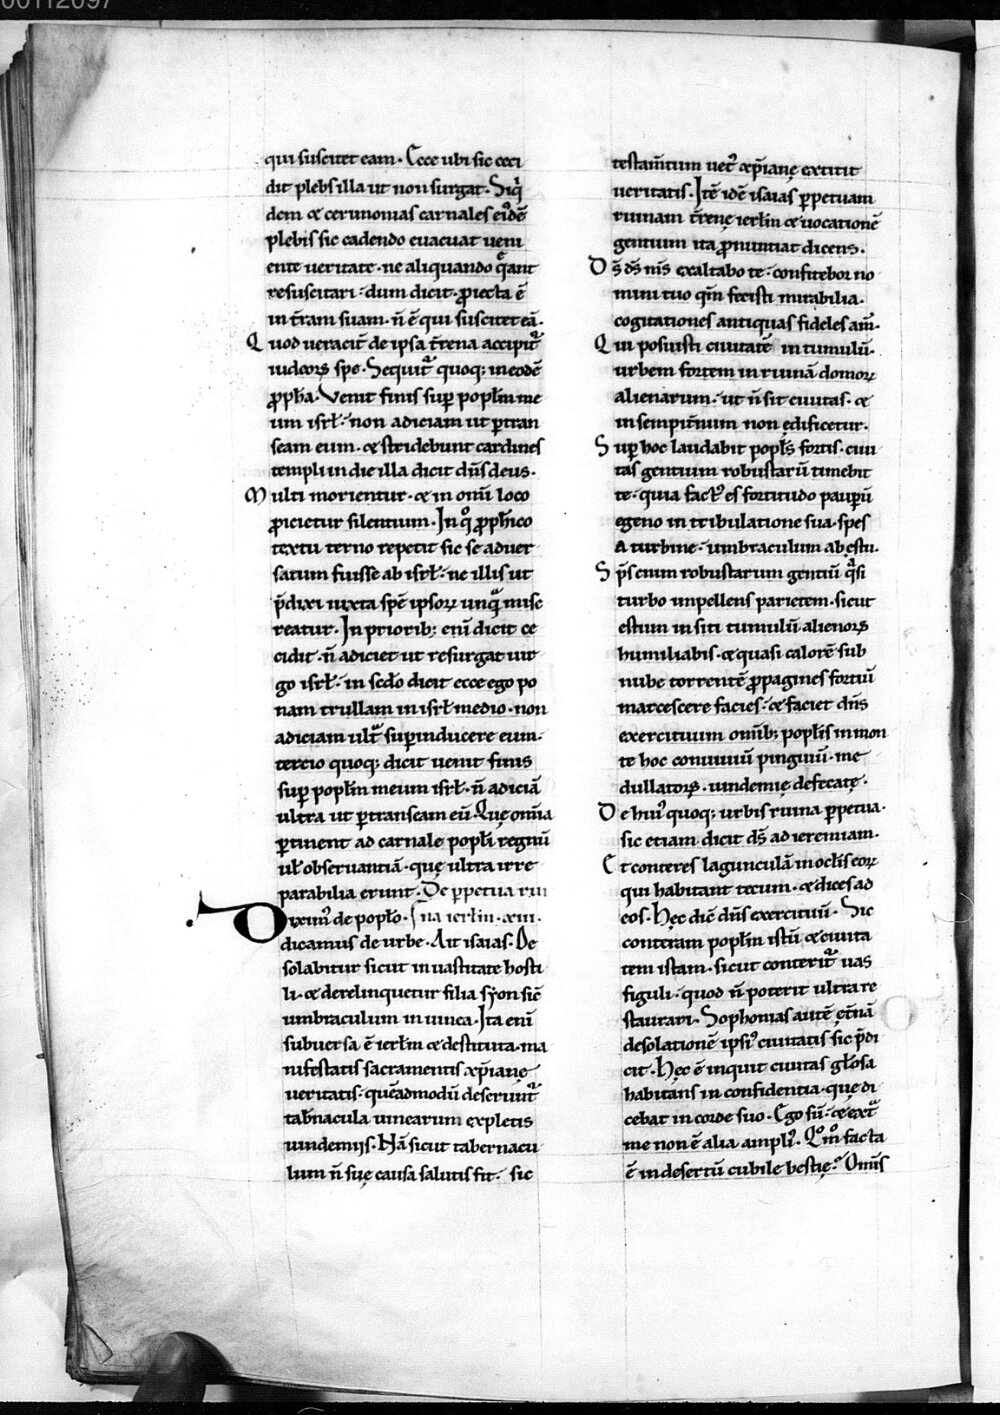 00112097
qui suscitet eam. Ecce ubi sic ceci
dit plebs illa ut non surgat. Siq̇
dem & cerimonias carnales eiꝰdē
plebis sic cadendo euacuat ueni
ente ueritate. ne aliquando q̄ant
resuscitari. dum dicit. ꝓiecta ē
in t̄ram suam. n̄ ē qui suscitet eā.
Quod ueracit̄ de ipsa t̄rena accipit᷑
iudeoꝝ spe. Sequit᷑ quoq; in eodē
ꝓph̄a. Venit finis sup̄ popl̄m me
um isrl̄. non adiciam ut ꝑtran
seam eum. & stridebunt cardines
templi in die illa dicit dn̄s deus.
Multi morientur. & in om̄i loco
ꝓicietur silentium. In q̊ ꝓph̄ico
textu terno repetit sic se aduer
satum fuisse ab isrl̄. ne illis ut
p̄dixi iuxta spē ipsoꝝ unq̄ mise
reatur. In priorib; eni dicit ce
cidit. n̄ adiciet ut resurgat uir
go isrl̄. in sc̄do dicit ecce ego po
nam trullam in isrl̄ medio. non
adiciam ult̄ sup̄inducere eum.
tercio quoq; dicit uenit finis
sup̄ popl̄m meum isrl̄. n̄ adiciā
ultra ut ꝑtranseam eū. Quę om̄ia
ꝑtinent ad carnale popl̄i regnū
ul̄ obseruantiā. quę ultra irre
parabilia erunt. De ꝑpetua rui
Diximꝰ de popl̄o. na ierl̄m. xiii.
dicamus de urbe. Ait isaias. De
solabitur sicut in uastitate hosti
li. & derelinquetur filia syon sic̄
umbraculum in uinea. Ita eni
subuersa ē ierl̄m & destituta. ma
nifestatis sacramentis xp̄ianę
ueritatis. quēadmodū deserunt᷑
tab̄nacula uinearum expletis
uindemiis. Hā sicut tabernacu
lum n̄ suę causa salutis fit. sic
testam̄tum uetꝰ xp̄ianę extitit
ueritatis. Itē idē isaias ꝑpetuam
ruinam t̄renę ierl̄m & uocationē
gentium ita ꝓnuntiat dicens.
Dn̄s ds̄ ms̄ exaltabo te. confitebor no
mini tuo qm̄ fecisti mirabilia.
cogitationes antiquas fideles am̄.
Qui posuisti ciuitatē in tumulū.
urbem fortem in ruinā domoꝝ
alienarum. ut n̄ sit ciuitas. &
in sempit̄num non edificetur.
Sup̄ hoc laudabit popl̄s fortis. ciui
tas gentium robustarū timebit
te. quia factꝰ es fortitudo paup̄ū
egeno in tribulatione sua. spes
a turbine. umbraculum ab estu.
Sp̄s enim robustarum gentiū q̄si
turbo impellens parietem. sicut
estum in siti tumulū alienoꝝ
humiliabis. & quasi calorē sub
nube torrentē ꝓpagines fortiū
marcescere facies. & faciet dn̄s
exercituum om̄ib; popl̄is in mon
te hoc conuiuiū pinguiū. me
dullatoꝝ. uindemię defecatę.
De huiꝰ quoq; urbis ruina ꝑpetua.
sic etiam dicit ds̄ ad ieremiam.
Et conteres lagunculā in ocl̄is eoꝝ
qui habitant tecum. & dices ad
eos. Hęc dic̄ dn̄s exercituū. Sic
conteram popl̄m istū & ciuita
tem istam. sicut conterit᷑ uas
figuli. quod n̄ poterit ultra re
staurari. Sophonias autē ęt̄nā
desolationē ipsiꝰ ciuitatis sic p̄di
cit. Hęc ē inquit ciuitas gl̄osa
habitans in confidentia. quę di
cebat in corde suo. Ego sū. & ext̄
me non ē alia ampliꝰ. Qm̊o facta
ē in desertū cubile bestię. Om̄is